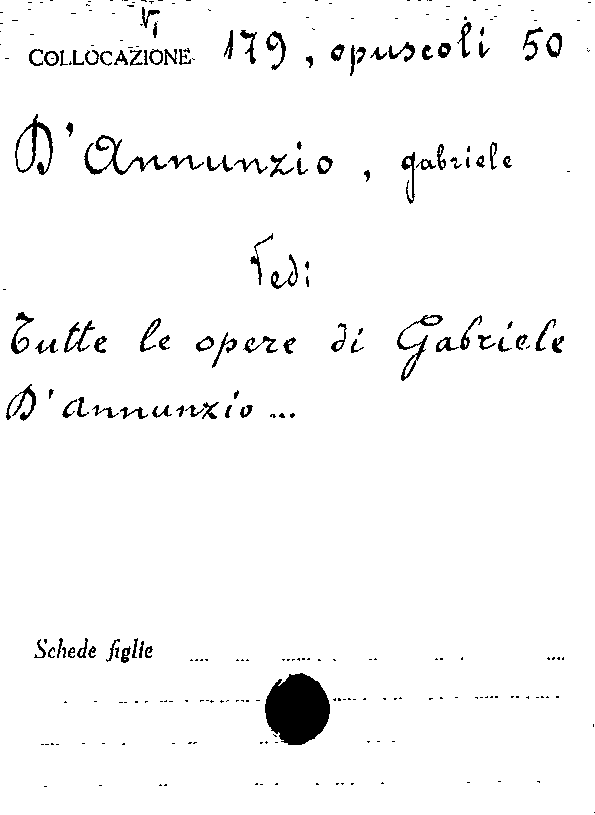 VI
COLLOCAZIONE 179, opuscoli 50
D'Annunzio, gabriele
Vedi
Tutte le opere di Gabriele
D'annunzio ...
Schede figlie